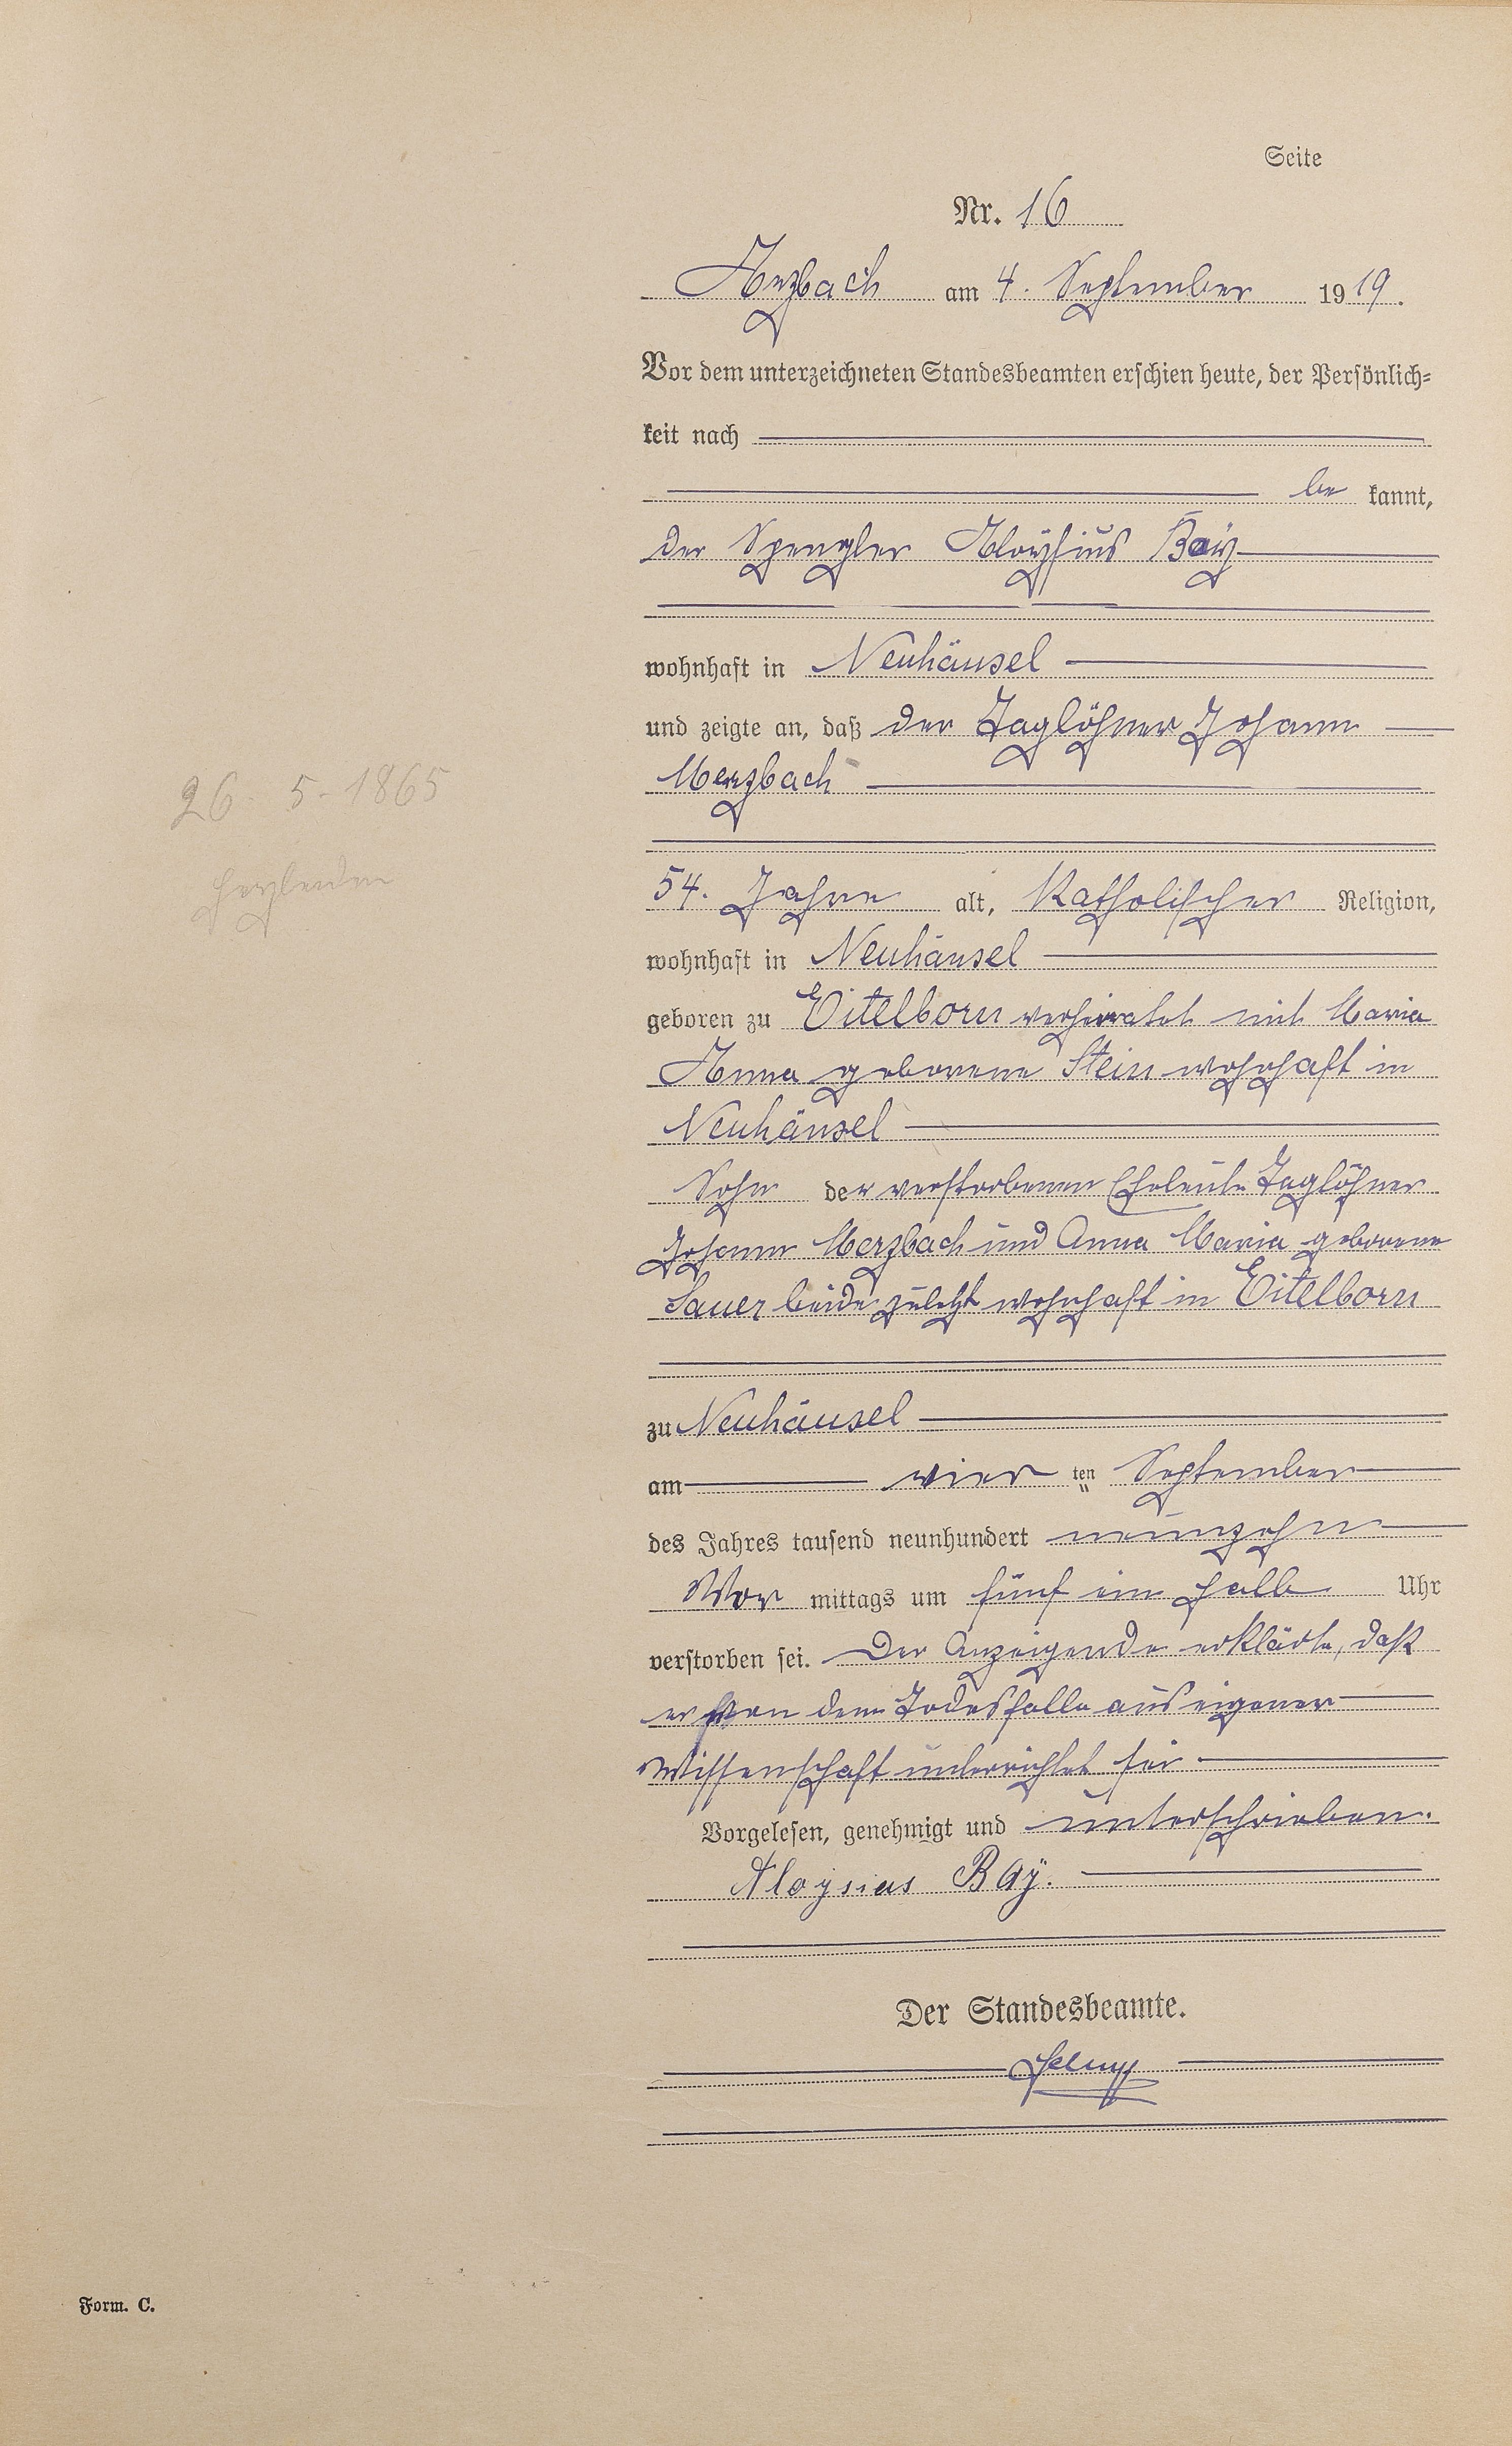 Seite
Nr. 16
Arzbach am 4. September 1919.
Vor dem unterzeichneten Standesbeamten erschien heute, der Persönlich=
keit nach
be kannt,
der Spengler Aloysius Baÿ
wohnhaft in Neuhäusel
und zeigte an, daß der Taglöhner Johann
Merzbach
26. 5. 1865
Herzleiden
54. Jahre alt, Katholischer Religion,
wohnhaft in Neuhäusel
geboren zu Eitelborn verheiratet mit Maria
Anna geborene Stein wohnhaft in
Neuhäusel
Sohn der verstorbenen Eheleute Taglöhner
Johann Merzbach und Anna Maria geborene
Sauer beide zuletzt wohnhaft in Eitelborn
zu Neuhäusel
am vier ten September
des Jahres tausend neunhundert neunzehn
Vor mittags um fünf ein halb Uhr
verstorben sei. Der Anzeigende erklärte, daß
er von dem Todesfalle aus eigener
Wissenschaft unterrichtet sei
Vorgelesen, genehmigt und unterschrieben.
Aloysius Baÿ.
Der Standesbeamte.
Form. C.